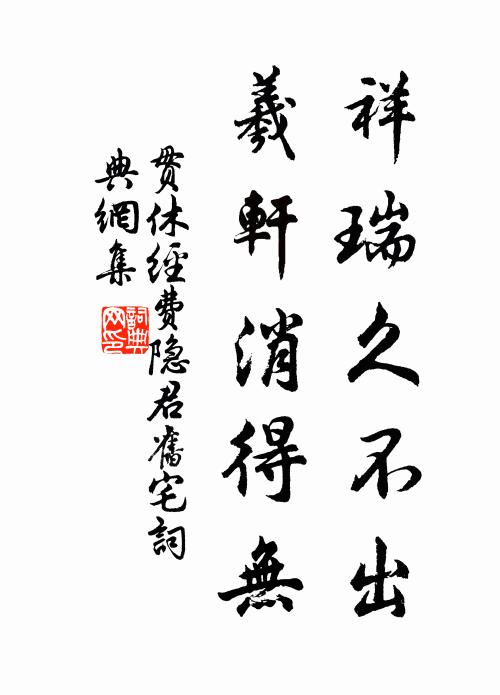 祥瑞久不出
羲軒消得無
贯休經費隐君舊宅詞
典網集
詞典
网印